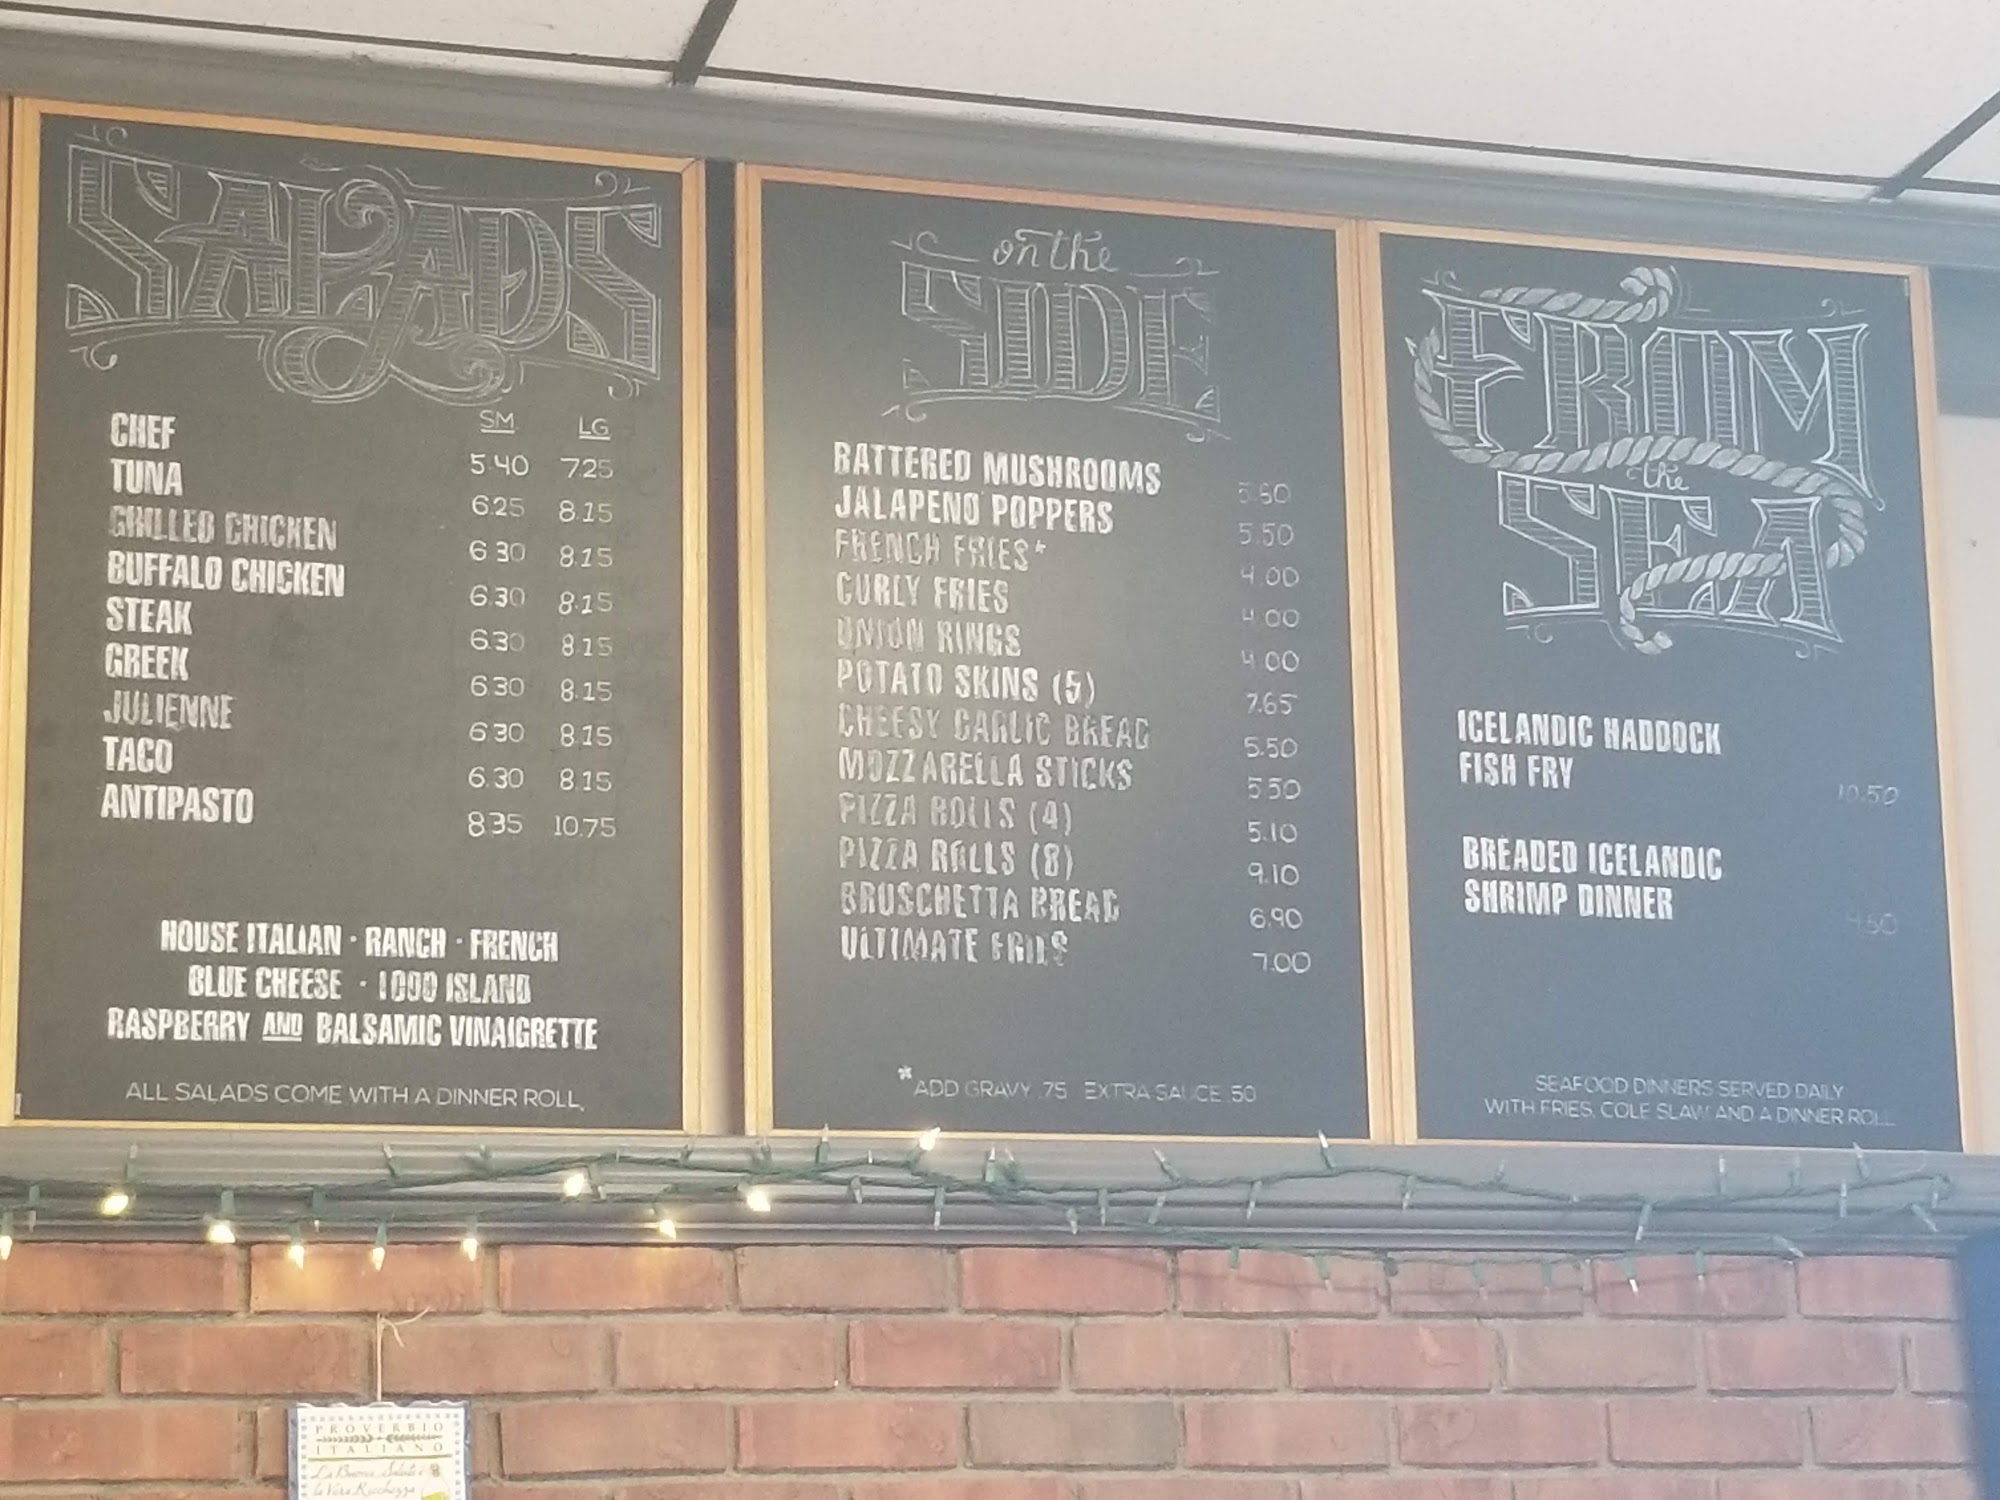 SALADS
SM LG
CHEF 5.40 7.25
TUNA 6.25 8.15
GRILLED CHICKEN 6.30 8.15
BUFFALO CHICKEN 6.30 8.15
STEAK 6.30 8.15
GREEK 6.30 8.15
JULIENNE 6.30 8.15
TACO 6.30 8.15
ANTIPASTO 8.35 10.75
HOUSE ITALIAN · RANCH · FRENCH
BLUE CHEESE · 1000 ISLAND
RASPBERRY AND BALSAMIC VINAIGRETTE
ALL SALADS COME WITH A DINNER ROLL.
on the
SIDE
BATTERED MUSHROOMS
JALAPENO POPPERS 5.50
FRENCH FRIES* 4.00
CURLY FRIES 4.00
ONION RINGS 4.00
POTATO SKINS (5) 7.65
CHEESY GARLIC BREAD 5.50
MOZZARELLA STICKS 5.50
PIZZA ROLLS (4) 5.10
PIZZA ROLLS (8) 9.10
BRUSCHETTA BREAD 6.90
ULTIMATE FRIES 7.00
*ADD GRAVY .75 EXTRA SAUCE .50
FROM
the
SEA
ICELANDIC HADDOCK
FISH FRY 10.50
BREADED ICELANDIC
SHRIMP DINNER
SEAFOOD DINNERS SERVED DAILY
WITH FRIES, COLE SLAW AND A DINNER ROLL
PROVERBIO
ITALIANO
La Buona Salute è
la Vera Ricchezza